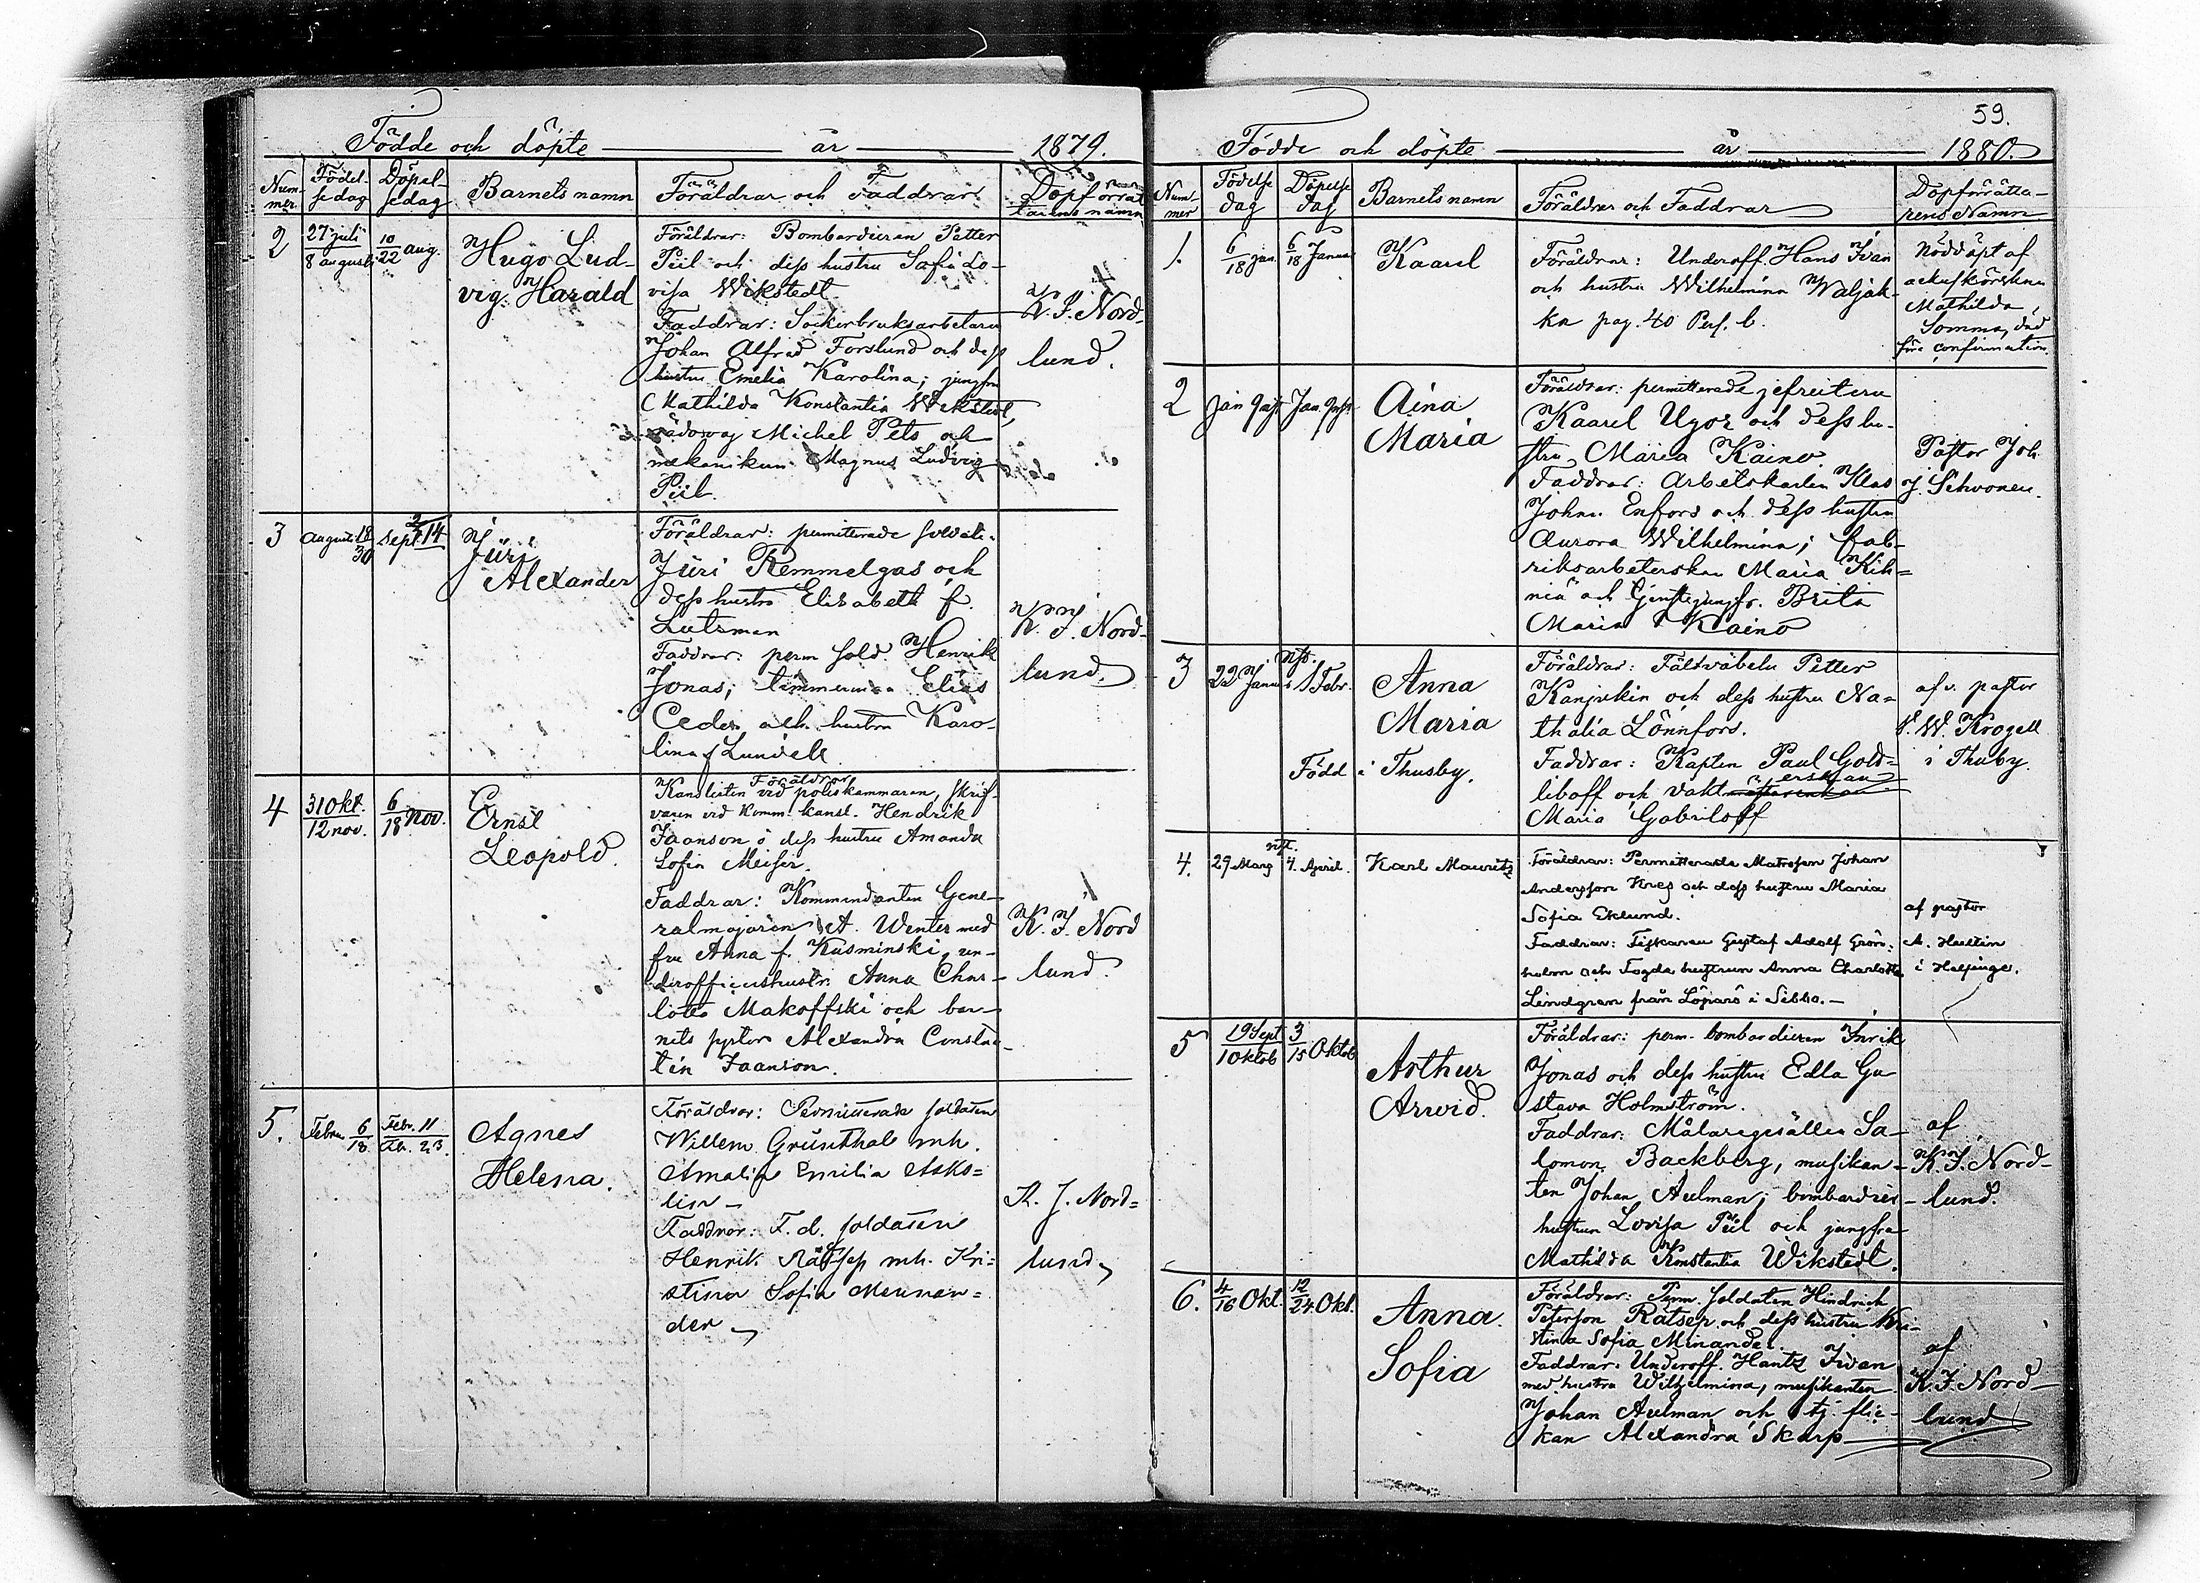 Födde och döpte år 1879.
Num-
mer
Födel-
sedag
Döpel-
sedag
Barnets namn
Föräldrar och Faddrar
Dopförrät-
tarens namn
2
27 juli
8 augusti
10
22 aug.
Hugo Lud-
vig Harald
Föräldrar: Bombardieren Petter
Piil och dess hustru Sofia Lo-
visa Wikstedt.
Faddrar: Sockerbruksarbetaren
Johan Alfred Forslund och dess
hustru Emelia Karolina; jungfru
Mathilda Konstantia Wikstedt,
Michel Pets och
mekanikun Magnus Ludvig
Piil.
K. J. Nord-
lund.
3
Augusti 18
30
Sept 2
14
Jüri
Alexander
Föräldrar: permitterade soldate.
Jüri Remmelgas och
dess hustru Elisabeth f.
Lutsman
Faddrar: perm sold. Henrik
Jonas, timmerman Elias
Ceder och hustru Karo-
lina f Lundell
K. J. Nord-
lund.
4
31 Okt.
12 nov.
6
18 nov.
Ernst
Leopold.
Föräldrar
Kanslisten vid poliskammaren, skrif-
varen vid Komm. kansl. Hendrik
Jaanson o dess hustru Amanda
Sofia Meiser.
Faddrar: Kommendanten Gene-
ralmajoren A. Winter med
fru Anna f. Kusminski, un-
derofficershustr. Anna Char-
lotta Makoffski och bar-
nets syster Alexandra Constan-
tin Jaanson.
K. J. Nord
lund.
5.
Febru. 6
18
Febr. 11
Feb. 23
Agnes
Helena.
Föräldrar: Permitterade soldaten
Willem Grünthal mh.
Amalia Emilia Asko-
lin
Faddrar: F. d. soldaten
Henrik Rätsep mh. Kri-
stina Sofia Menan-
der
K. J. Nord-
lund
59.
Födde och döpte år 1880.
Num-
mer
Födelse
dag
Döpelse
dag
Barnets namn
Föräldrar och Faddrar
Dopförrätta-
rens Namn
1.
6
18 jan.
6
18 Januari
Kaarel
Föräldrar: Underoff. Hans Iwan
och hustru Wilhelmina Waljak-
ka pag. 40 Pers. b.
Nöddöpt af
ackuschörskan
Mathilda
Somma, död
före confirmation.
2
Jan 9 n. st.
Jan. 9 n. st.
Aina
Maria
Föräldrar: permitterade jefreitern
Kaarel Ugor och dess hu-
stru Maria Kaino.
Faddrar: Arbetskarlen Klas
Johan Enfors och dess hustru
Aurora Wilhelmina; fab-
riksarbeterskan Maria Kih-
niä och Genstejungfr. Brita
Maria Kaino
Pastor Joh.
J. Sihvonen.
3
22 Janu
nst.
1 Febr.
Anna
Maria
Född i Thusby.
Föräldrar: Fältväbeln Petter
Kanjukin och dess hustru Na-
thalia Lönnfors.
Faddrar: Kapten Paul Gold-
liboff och vakt
erskan
Maria Gabriloff
af v. pastor
V. W. Krogell
i Thusby.
4.
29 Mars
nst.
4. April.
Karl Mauritz
Föräldrar: Permitterade Matrosen Johan
Andersson Kres och dess hustru Maria
Sofia Eklund.
Faddrar: Fiskaren Gustaf Adolf Grön-
holm och Fogde hustrun Anna Charlotta
Lindgren från Löparö i Sibbo.
af pastor
A. Hallin
i Helsinge.
5
19 Sept
1 Oktob
3
15 Oktob
Arthur
Arvid.
Föräldrar: perm. bombardieren Inrik
Jonas och dess hustru Edla Gu
stava Holmström.
Faddrar: Målaregesällen Sa-
lomon Backberg, musikan-
ten Johan Aulman; bombardier-
hustrun Lovisa Piil och jungfru
Mathilda Konstantia Wikstedt.
af
K. J. Nord-
lund.
6.
4
16 Okt.
12
24 Okt.
Anna
Sofia
Föräldrar: Perm. soldaten Hindrick
Peterson Rätsep och dess hustru Kri-
stina Sofia Minander.
Faddrar: Underoff. Hants Iwan
med hustru Wilhelmina, musikanten
Johan Aulman och tj. flic-
kan Alexandra Skarp
af
K. J. Nord-
lund